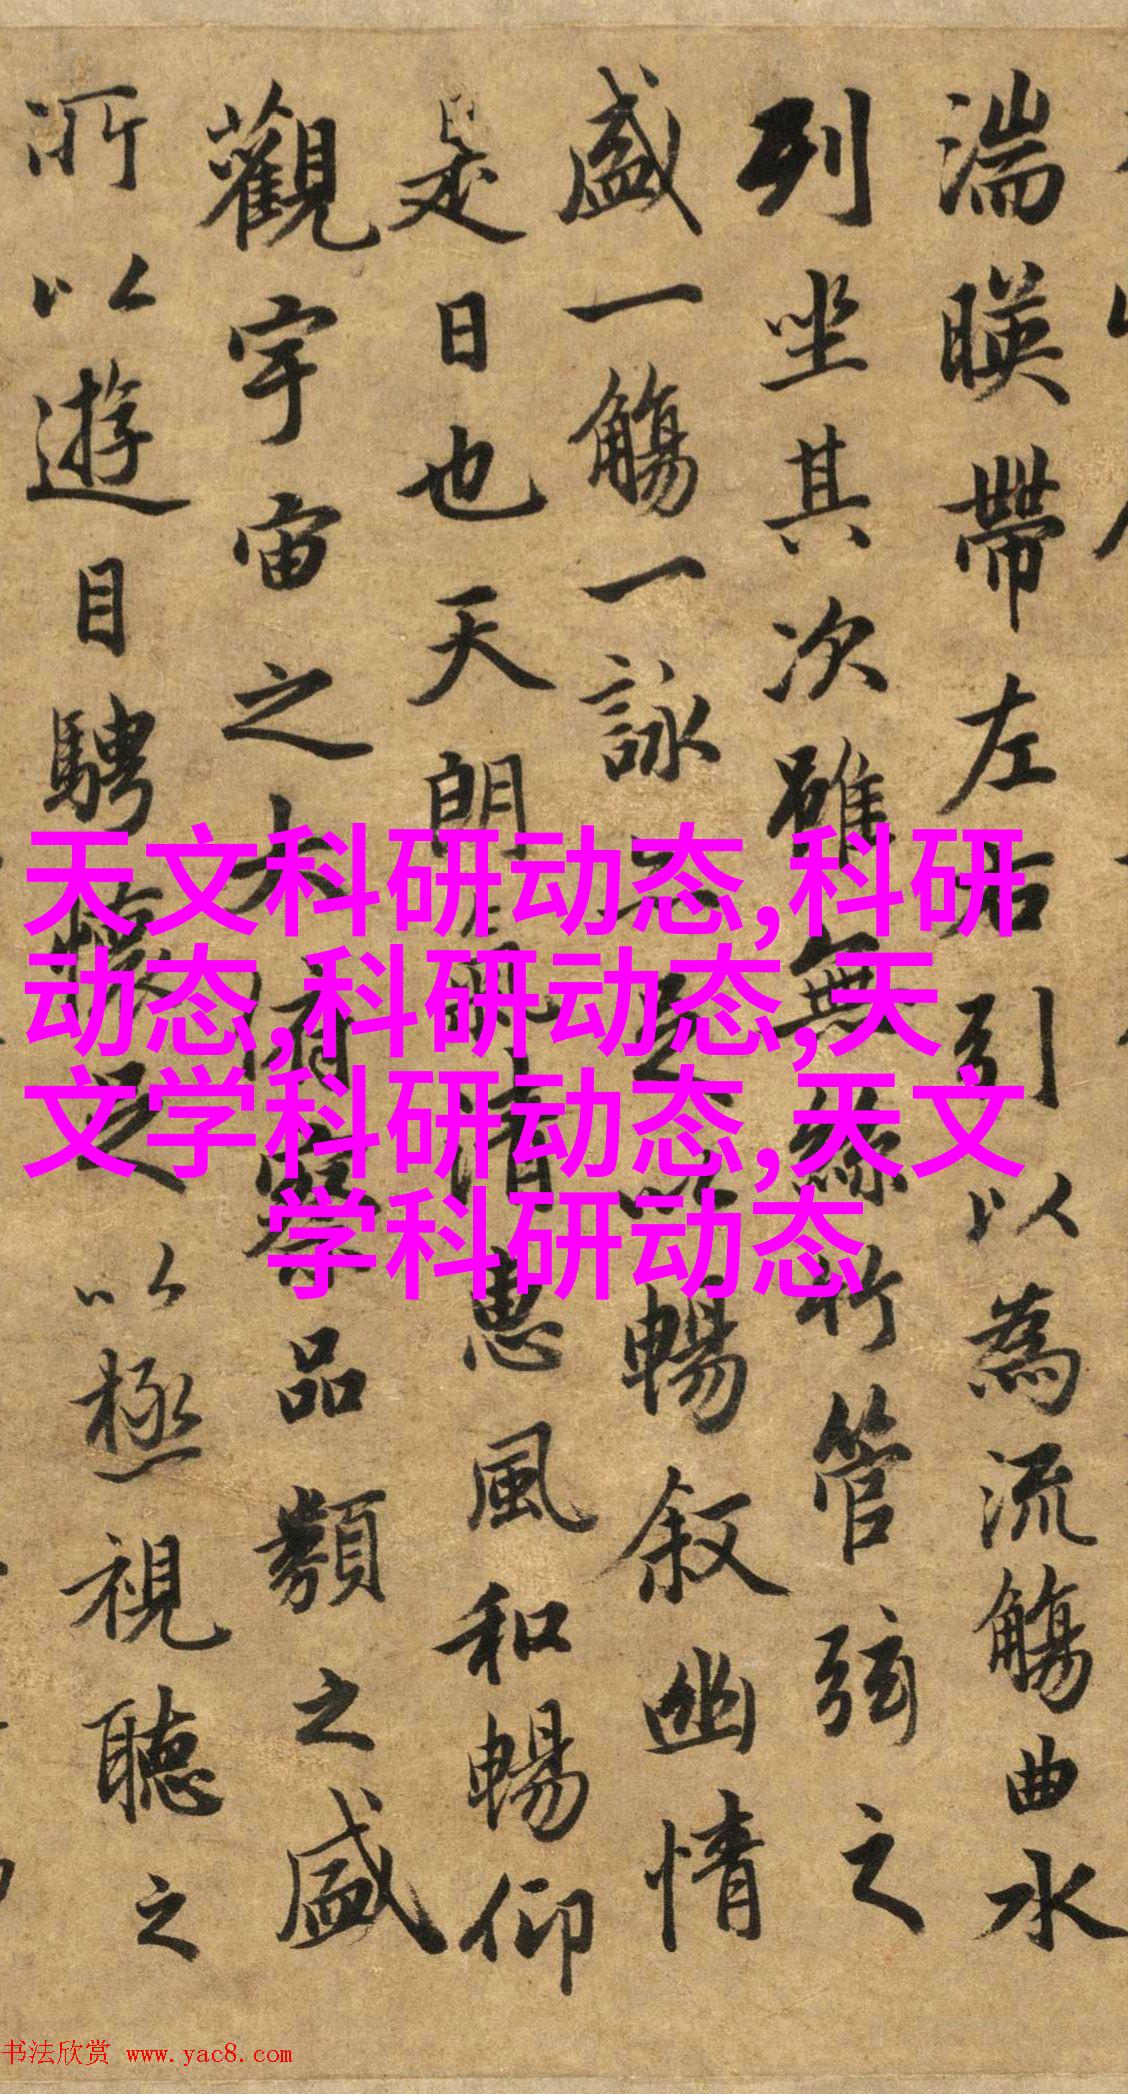 湍暎帶左右引以為流觴曲水
列坐其次雖無絲竹管弦之
盛一觴一詠足以暢叙幽情
是日也天朗氣清惠風和暢仰
觀宇宙之大俯察品類之盛
所以遊目騁懷足以極視聽之
天文科研动态,科研
动态,科研动态,天
文学科研动态,天文
学科研动态
书法欣赏 www.yac8.com